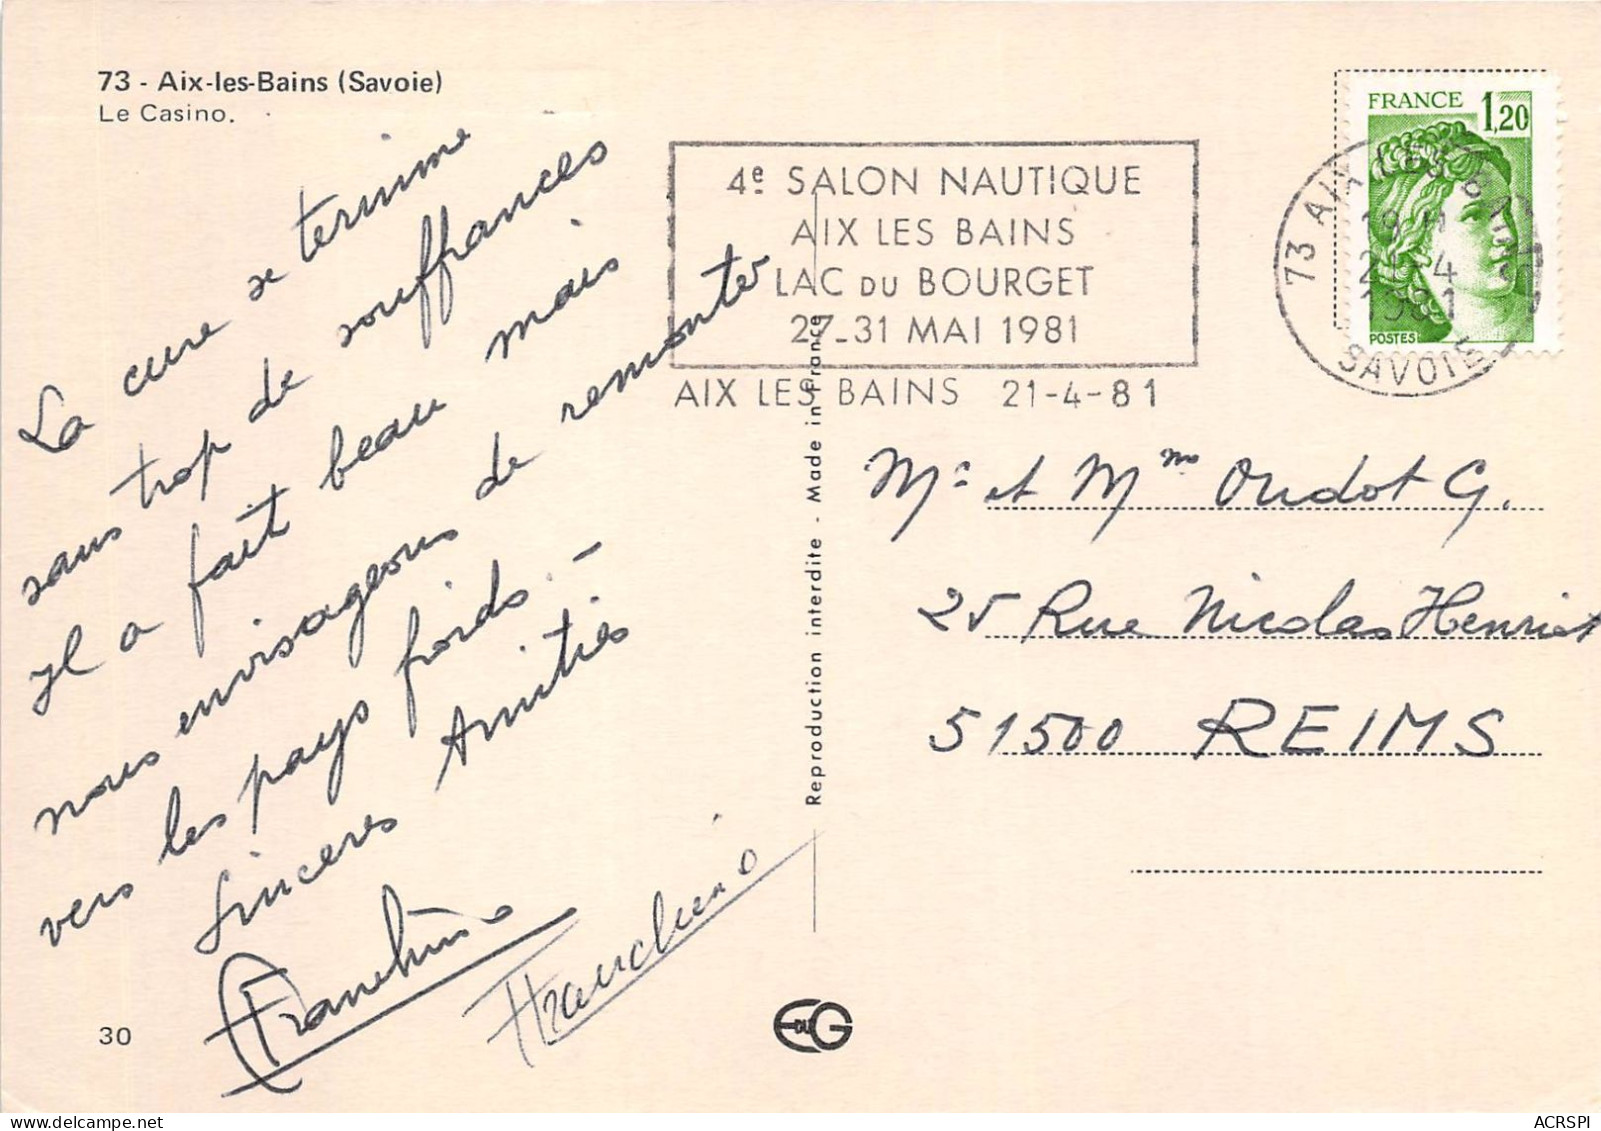 73 - Aix-les-Bains (Savoie)
Le Casino.
La cure se termine
sans trop de souffrances
Il a fait beau mais
nous envisageons de remonter
vers les pays froids. -
Sinceres Amitiés
Franchino
Franchino
30
4e SALON NAUTIQUE
AIX LES BAINS
LAC DU BOURGET
27-31 MAI 1981
AIX LES BAINS 21-4-81
FRANCE 1,20
POSTES
73 AIX LES BAINS
19 H
21-4
1981
SAVOIE
Mr et Mme Oudot G.
25 Rue Nicolas Henriot
51500 REIMS
Reproduction interdite - Made in France
EDUG
ACRSPI